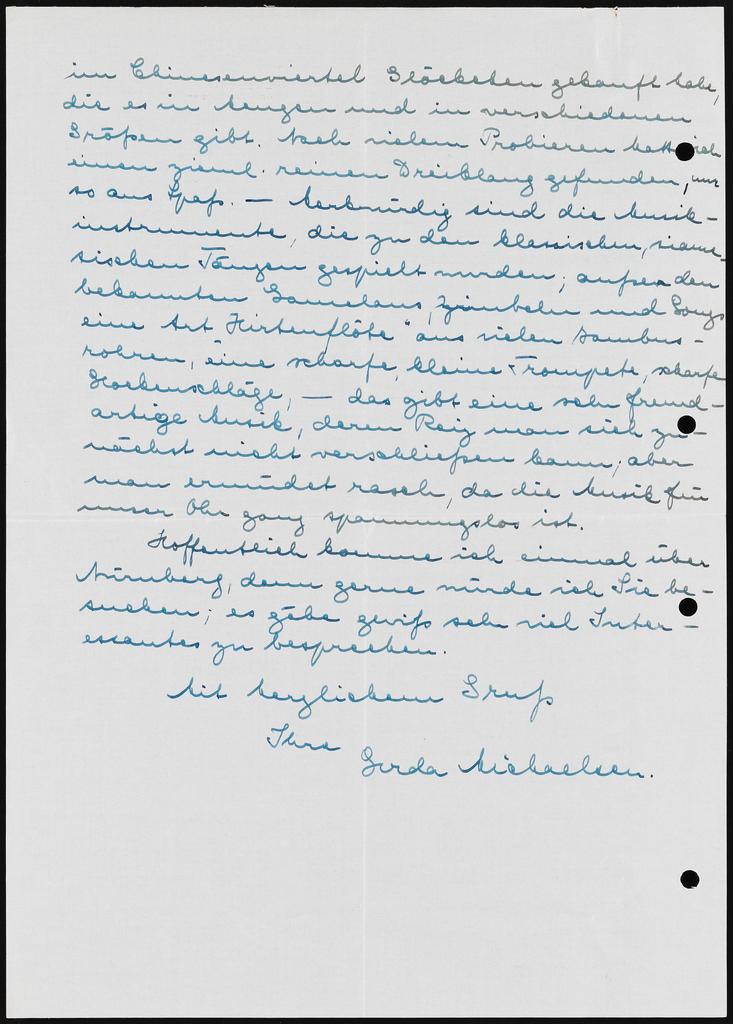 im Chinesenviertel Glöckchen gekauft habe,
die es in Mengen und in verschiedenen
Größen gibt. Nach vielem Probieren hatte ich
einen zieml. reinen Dreiklang gefunden, nur
so aus Spaß. — Merkwürdig sind die Musik-
instrumente, die zu den klassischen, siame-
sischen Tänzen gespielt wurden; außer den
bekannten Gamelans, Zimbeln und Gongs
eine Art Hirtenflöte" aus vielen Bambus-
rohren, eine scharfe, kleine Trompete, scharfe
Glockenschläge, — das gibt eine sehr fremd-
artige Musik, deren Reiz man sich zu-
nächst nicht verschließen kann; aber
man ermüdet rasch, da die Musik für
unser Ohr ganz spannungslos ist.
Hoffentlich komme ich einmal über
Nürnberg, denn gerne würde ich Sie be-
suchen; es gäbe gewiß sehr viel Inter-
essantes zu besprechen.
Mit herzlichem Gruß
Ihre
Gerda Michaelsen.